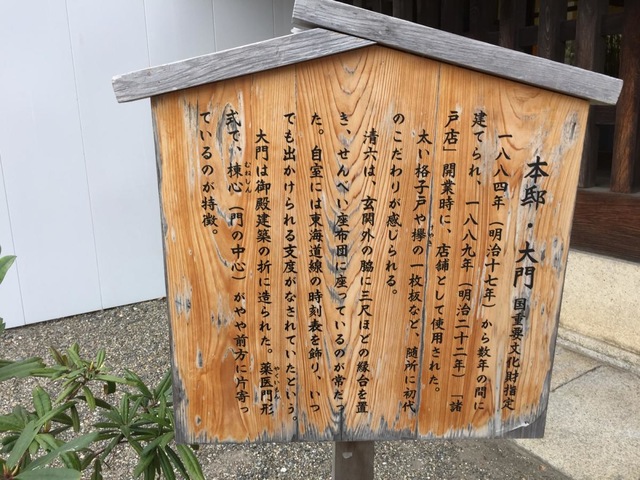 本邸・大門 国重要文化財指定
一八八四年（明治十七年）から数年の間に
建てられ、一八八九年（明治二十二年）「諸
戸店」開業時に、店舗として使用された。
太い格子戸や欅の一枚板など、随所に初代
のこだわりが感じられる。
清六は、玄関外の脇に三尺ほどの縁台を置
き、せんべい座布団に座っているのが常だっ
た。自室には東海道線の時刻表を飾り、いつ
でも出かけられる支度がなされていたという。
大門は御殿建築の折に造られた。薬医門形
やくいもん
式で、棟心（門の中心）がやや前方に片寄っ
むねしん
ているのが特徴。